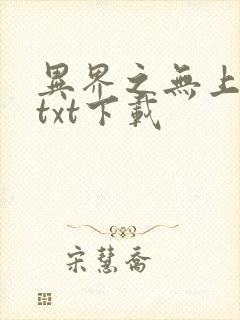 異界之無上
txt下載
宋慧喬